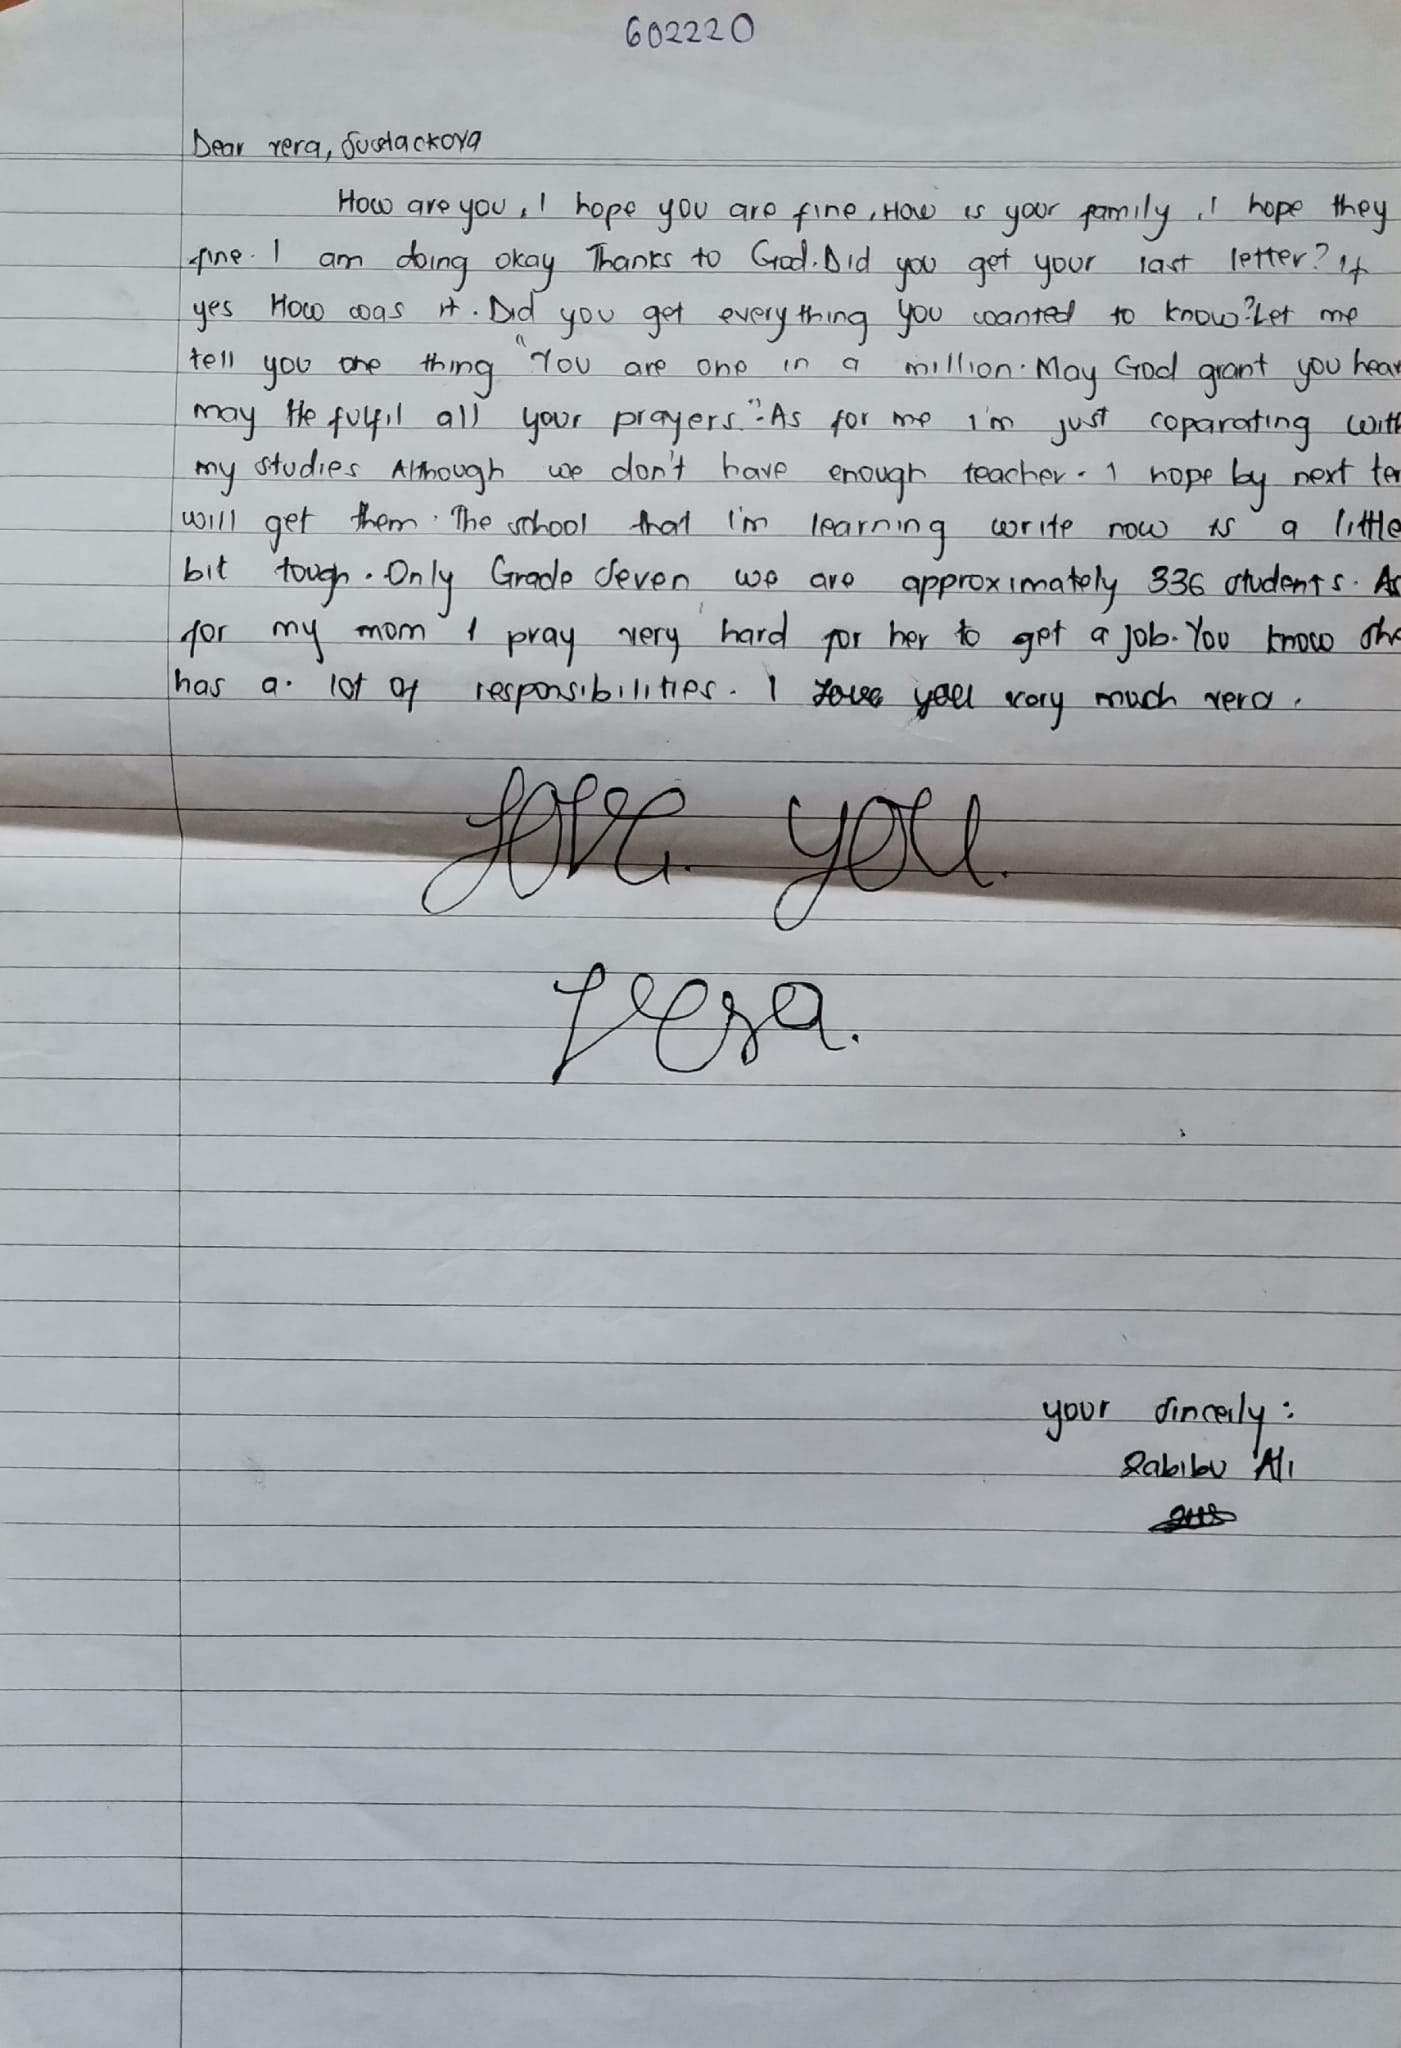 602220
Dear vera,
How are you, I hope you are fine, How is your family, I hope they
fine. I am doing okay Thanks to God. Did you get your last letter? If
yes How was it. Did you get everything you wanted to know? Let me
tell you one thing "You are one in a million. May God grant you
may He fulfil all your prayers." As for me I'm just coparating with
my studies Although we don't have enough teacher. I hope by next
will get them. The school that I'm learning write now is a little
bit tough. Only Grade Seven we are approximately 336 students. As
for my mom I pray very hard for her to get a job. You know she
has a. lot of responsibilities. I Love you very much vera.
Love you.
Vera.
your sincerly:
Rabibu Ali